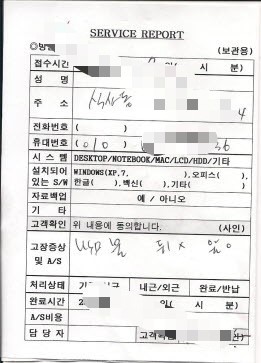 SERVICE REPORT
◎방
(보관용)
접수시간 시 분)
성 명
주 소 4
전화번호 ( )
휴대번호 (010 36
시 스 템 DESKTOP/NOTEBOOK/MAC/LCD/HDD/기타
설치되어 있는 S/W WINDOWS(XP,7, ),오피스( ),
한글( ),백신( ),기타( )
자료백업 예 / 아니오
기 타
고객확인 위 내용에 동의합니다. (사인)
고장증상 및 A/S
처리상태 내근/외근 완료/반납
완료시간 시 분)
A/S비용
담 당 자 고객